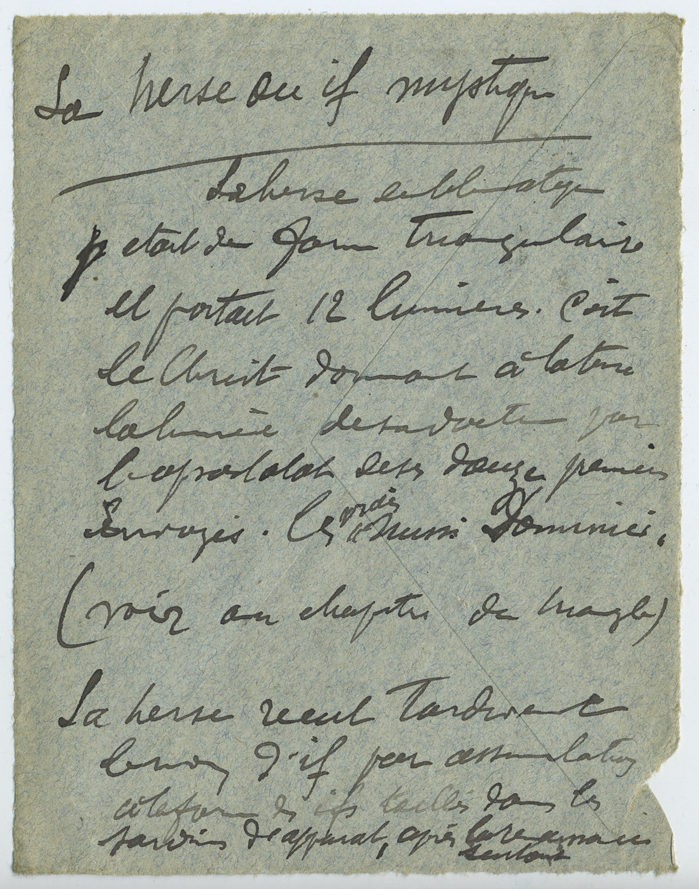 La herse ou if mystique
La herse emblématique
était de forme triangulaire
et portait 12 lumières. C'est
le Christ donnant à la terre
la lumière de sa doctrine par
l'apostolat de ses douze premiers
Envoyés. Les Missi Dominici.
(voir au chapitre du triangle)
La herse reçut tardivement
le nom d'if par assimilation
à la forme des ifs taillés dans les
jardins d'apparat, après la renaissance
surtout